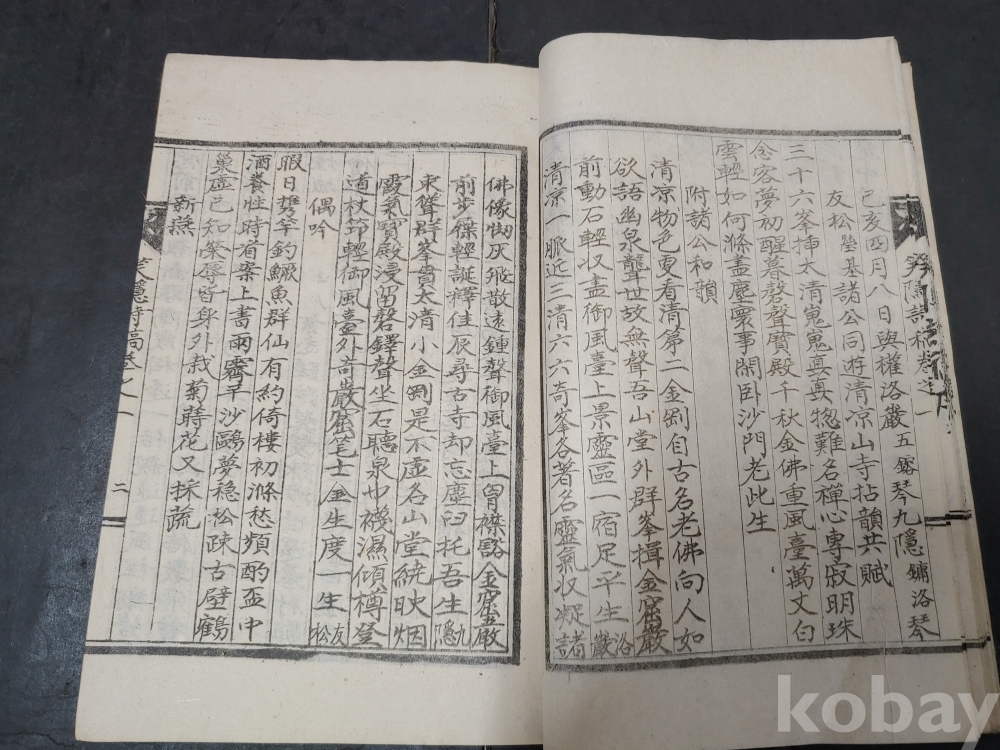 己亥四月八日與權洛巖五 琴九隱鏞洛琴
友松 基諸公同遊清凉山寺拈韻共賦
三十六峯揷太清嵬嵬真真惚難名禪心專寂明珠
念客夢初醒暮磬聲寶殿千秋金佛重風臺萬丈白
雲輕如何滌盡塵寰事閑卧沙門老此生
附諸公和韻
清凉物色更看清第二金剛自古名老佛向人如
欲語幽泉聾世故無聲吾山堂外群峯揖金窟巖
前動石輕収盡御風臺上景靈區一宿足平生洛巖
清凉一脈近三清六六奇峯各著名靈氣収凝諸
佛像 灰飛散遠鍾聲御風臺上胷襟豁金窟巖
前步屧輕誕釋佳辰尋古寺却忘塵臼托吾生九隱
東聳群峯貴太清小金剛是不虛名山堂繞映烟
霞氣寶殿浸留磬鐸聲坐石聽泉也襪濕傾樽登
道杖笻輕御風臺外奇巖窟笔士金生度一生友松
偶吟
暇日携竿釣鱖魚群仙有約倚樓初滌愁頻酌盃中
酒養性時看案上書雨霽平沙鷗夢穩松疎古壁鶴
巢虛已知榮辱皆身外栽菊蒔花又採蔬
新燕
隱詩稿卷之一
二